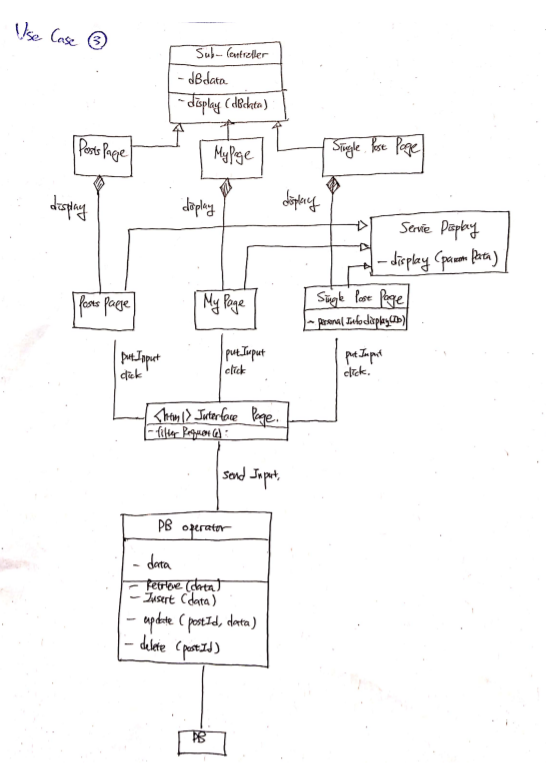 Use Case ③
Sub-Controller
- dBdata
- display (dBdata)
Posts Page
My Page
Single Post Page
display
display
display
Servie Display
- display (param Data)
Posts Page
My Page
Single Post Page
- personal Info display(ID)
put Input
click
put Input
click
put Input
click.
<html> Interface Page.
- filter Request( ):
send Input,
DB operator
- data
- Retrieve (data)
- Insert (data)
- update (postId, data)
- delete (postId)
DB